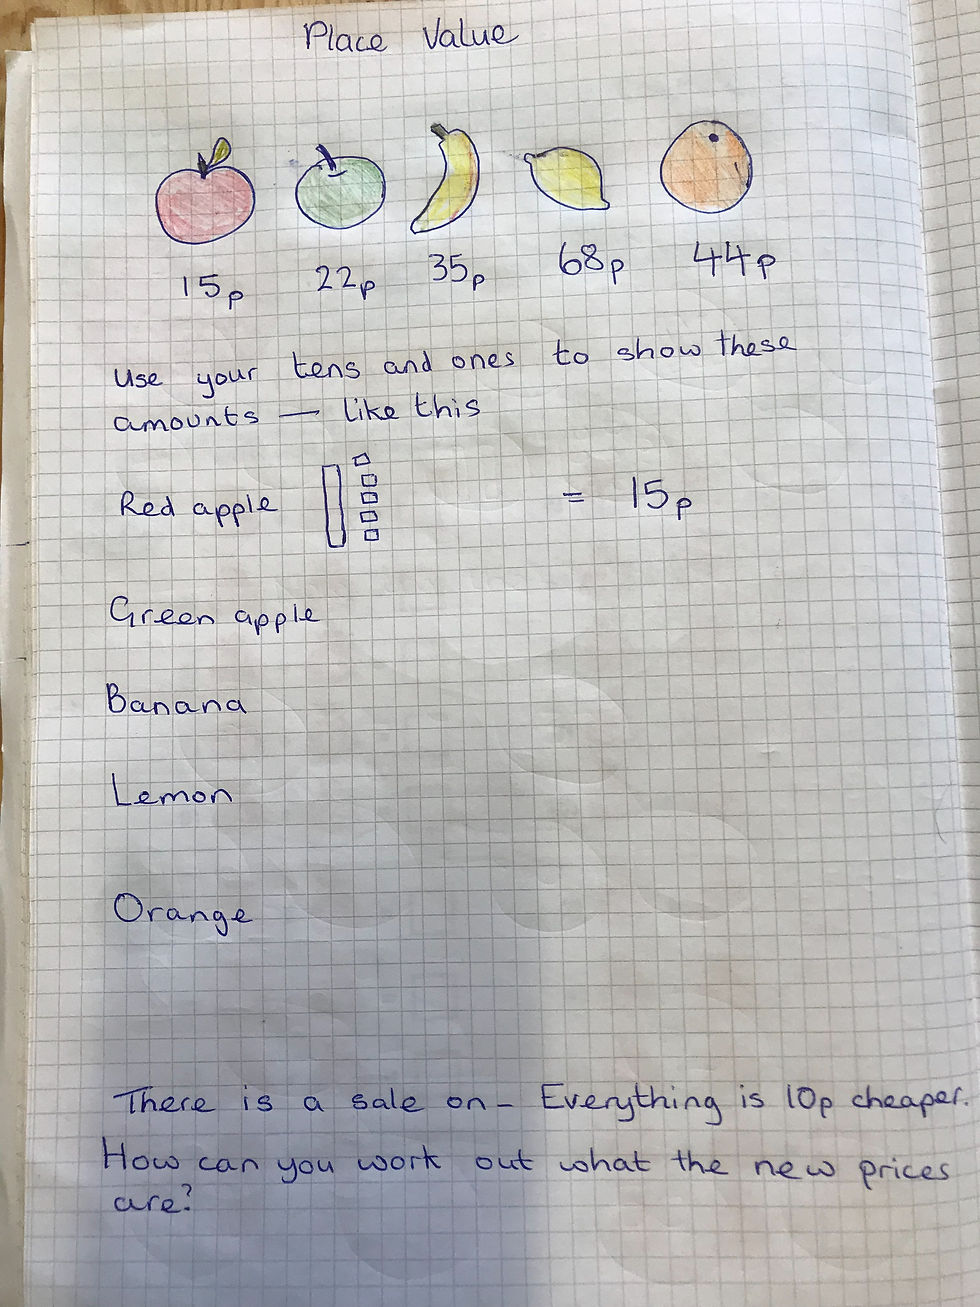 Place Value
15p 22p 35p 68p 44p
Use your tens and ones to show these
amounts — like this
Red apple = 15p
Green apple
Banana
Lemon
Orange
There is a sale on - Everything is 10p cheaper.
How can you work out what the new prices
are?